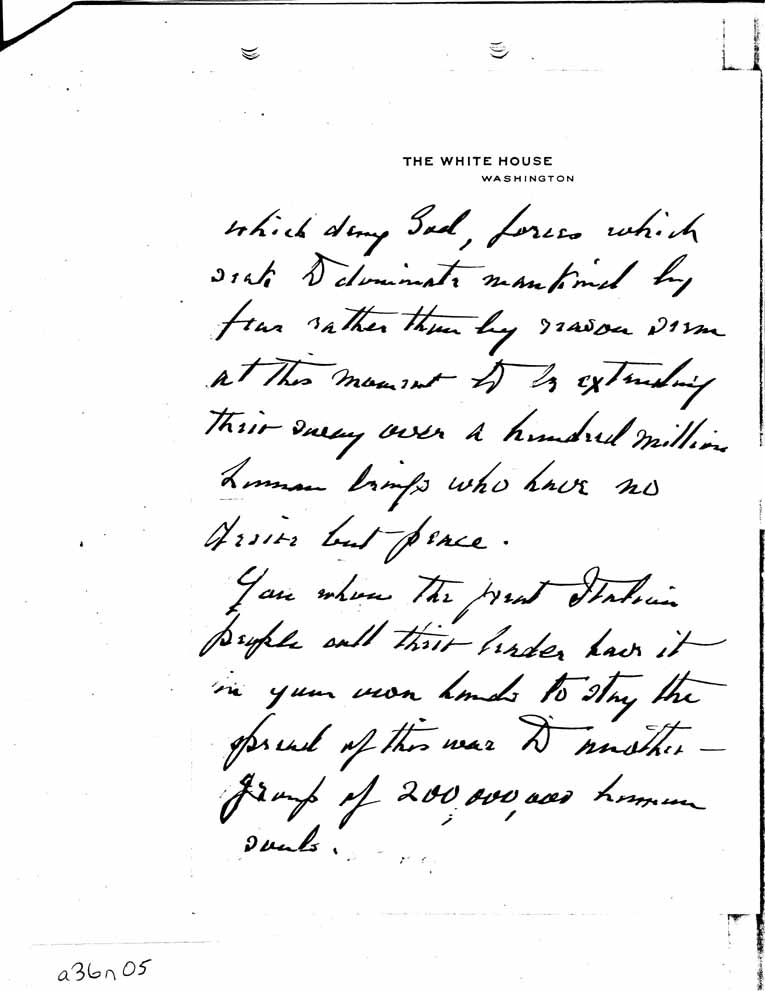 THE WHITE HOUSE
WASHINGTON
which deny God, forces which
seek to dominate mankind by
fear rather than by reason seem
at this moment to be extending
their sway over a hundred million
human beings who have no
desire but peace.
You whom the great Italian
people call their leader have it
in your own hands to stay the
spread of this war to another
group of 200,000,000 human
souls.
a36n05